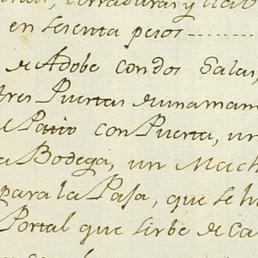 en sesenta pesos
de Adobe con dos Salas,
tres Puertas de una man
Patio con Puerta, un
a Bodega, un Mach
para la Pasa, que se h
Portal que sirbe de Ca